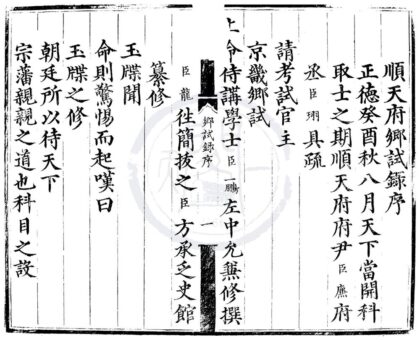 順天府鄉試錄序
正德癸酉秋八月天下當開科
取士之期順天府府尹臣廌府
丞臣珝具疏
請考試官主
京畿鄉試
上命侍講學士臣一鵬左中允兼修撰
臣龍往簡抜之臣方承乏史館
鄉試錄序
一
纂修
玉牒聞
命則驚惕而起嘆曰
玉牒之修
朝廷所以待天下
宗藩親親之道也科目之設